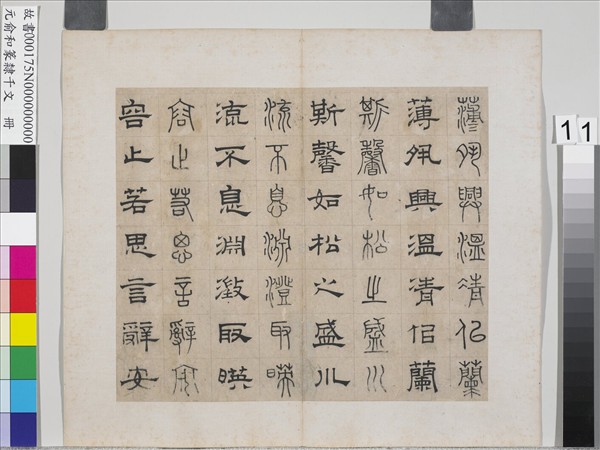 薄夙興溫清似蘭
薄夙興溫清佀蘭
斯馨如松之盛川
斯馨如松之盛川
流不息淵澄取暎
流不息淵澂取暎
容止若思言辭安
容止若思言辭安
故書000175N000000000
元俞和篆隸千文 冊
11